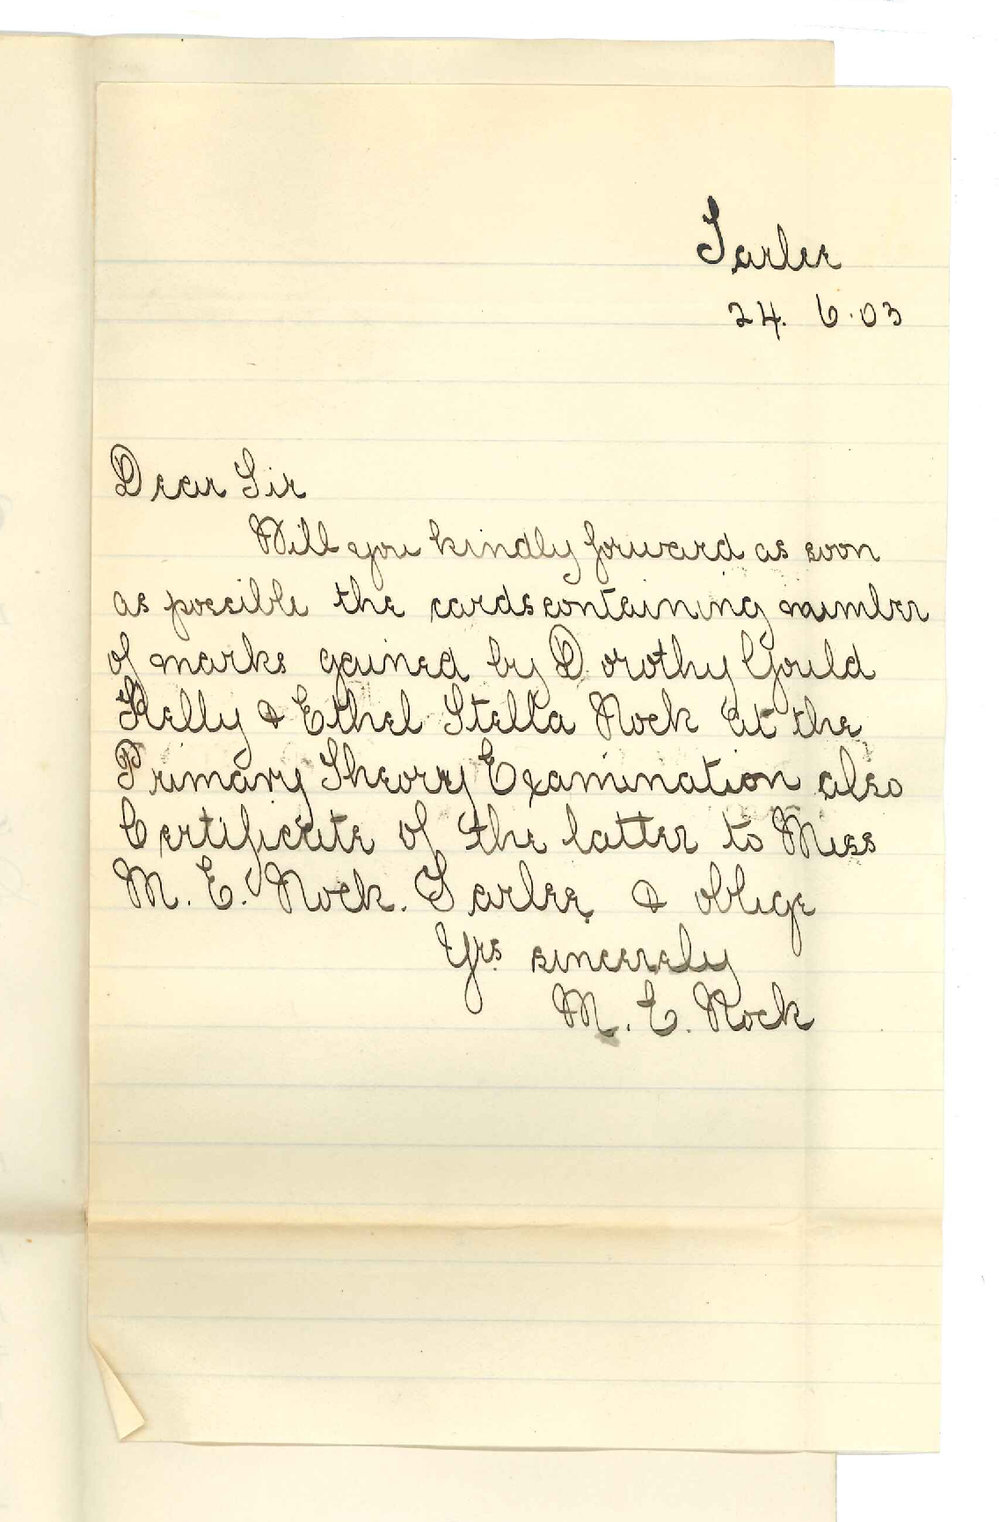 Tarlee
24. 6.03
Dear Sir
Will you kindly forward as soon
as possible the cards containing number
of marks gained by Dorothy Gould
Kelly & Ethel Stella Nock at the
Primary Theory Examination also
Certificate of the latter to Miss
M. E. Nock. Tarlee, & oblige
Yrs. sincerely
M. E. Nock